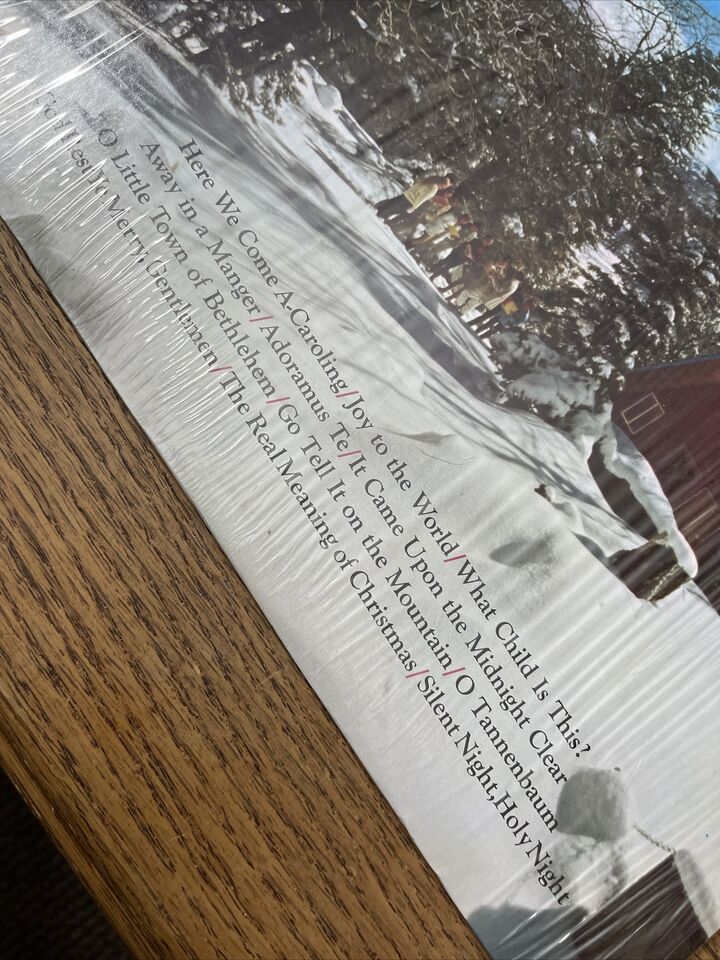 Here We Come A-Caroling/Joy to the World/What Child Is This?
Away in a Manger/Adoramus Te/It Came Upon the Midnight Clear
O Little Town of Bethlehem/Go Tell It on the Mountain/O Tannenbaum
God Rest Ye Merry, Gentlemen/The Real Meaning of Christmas/Silent Night, Holy Night